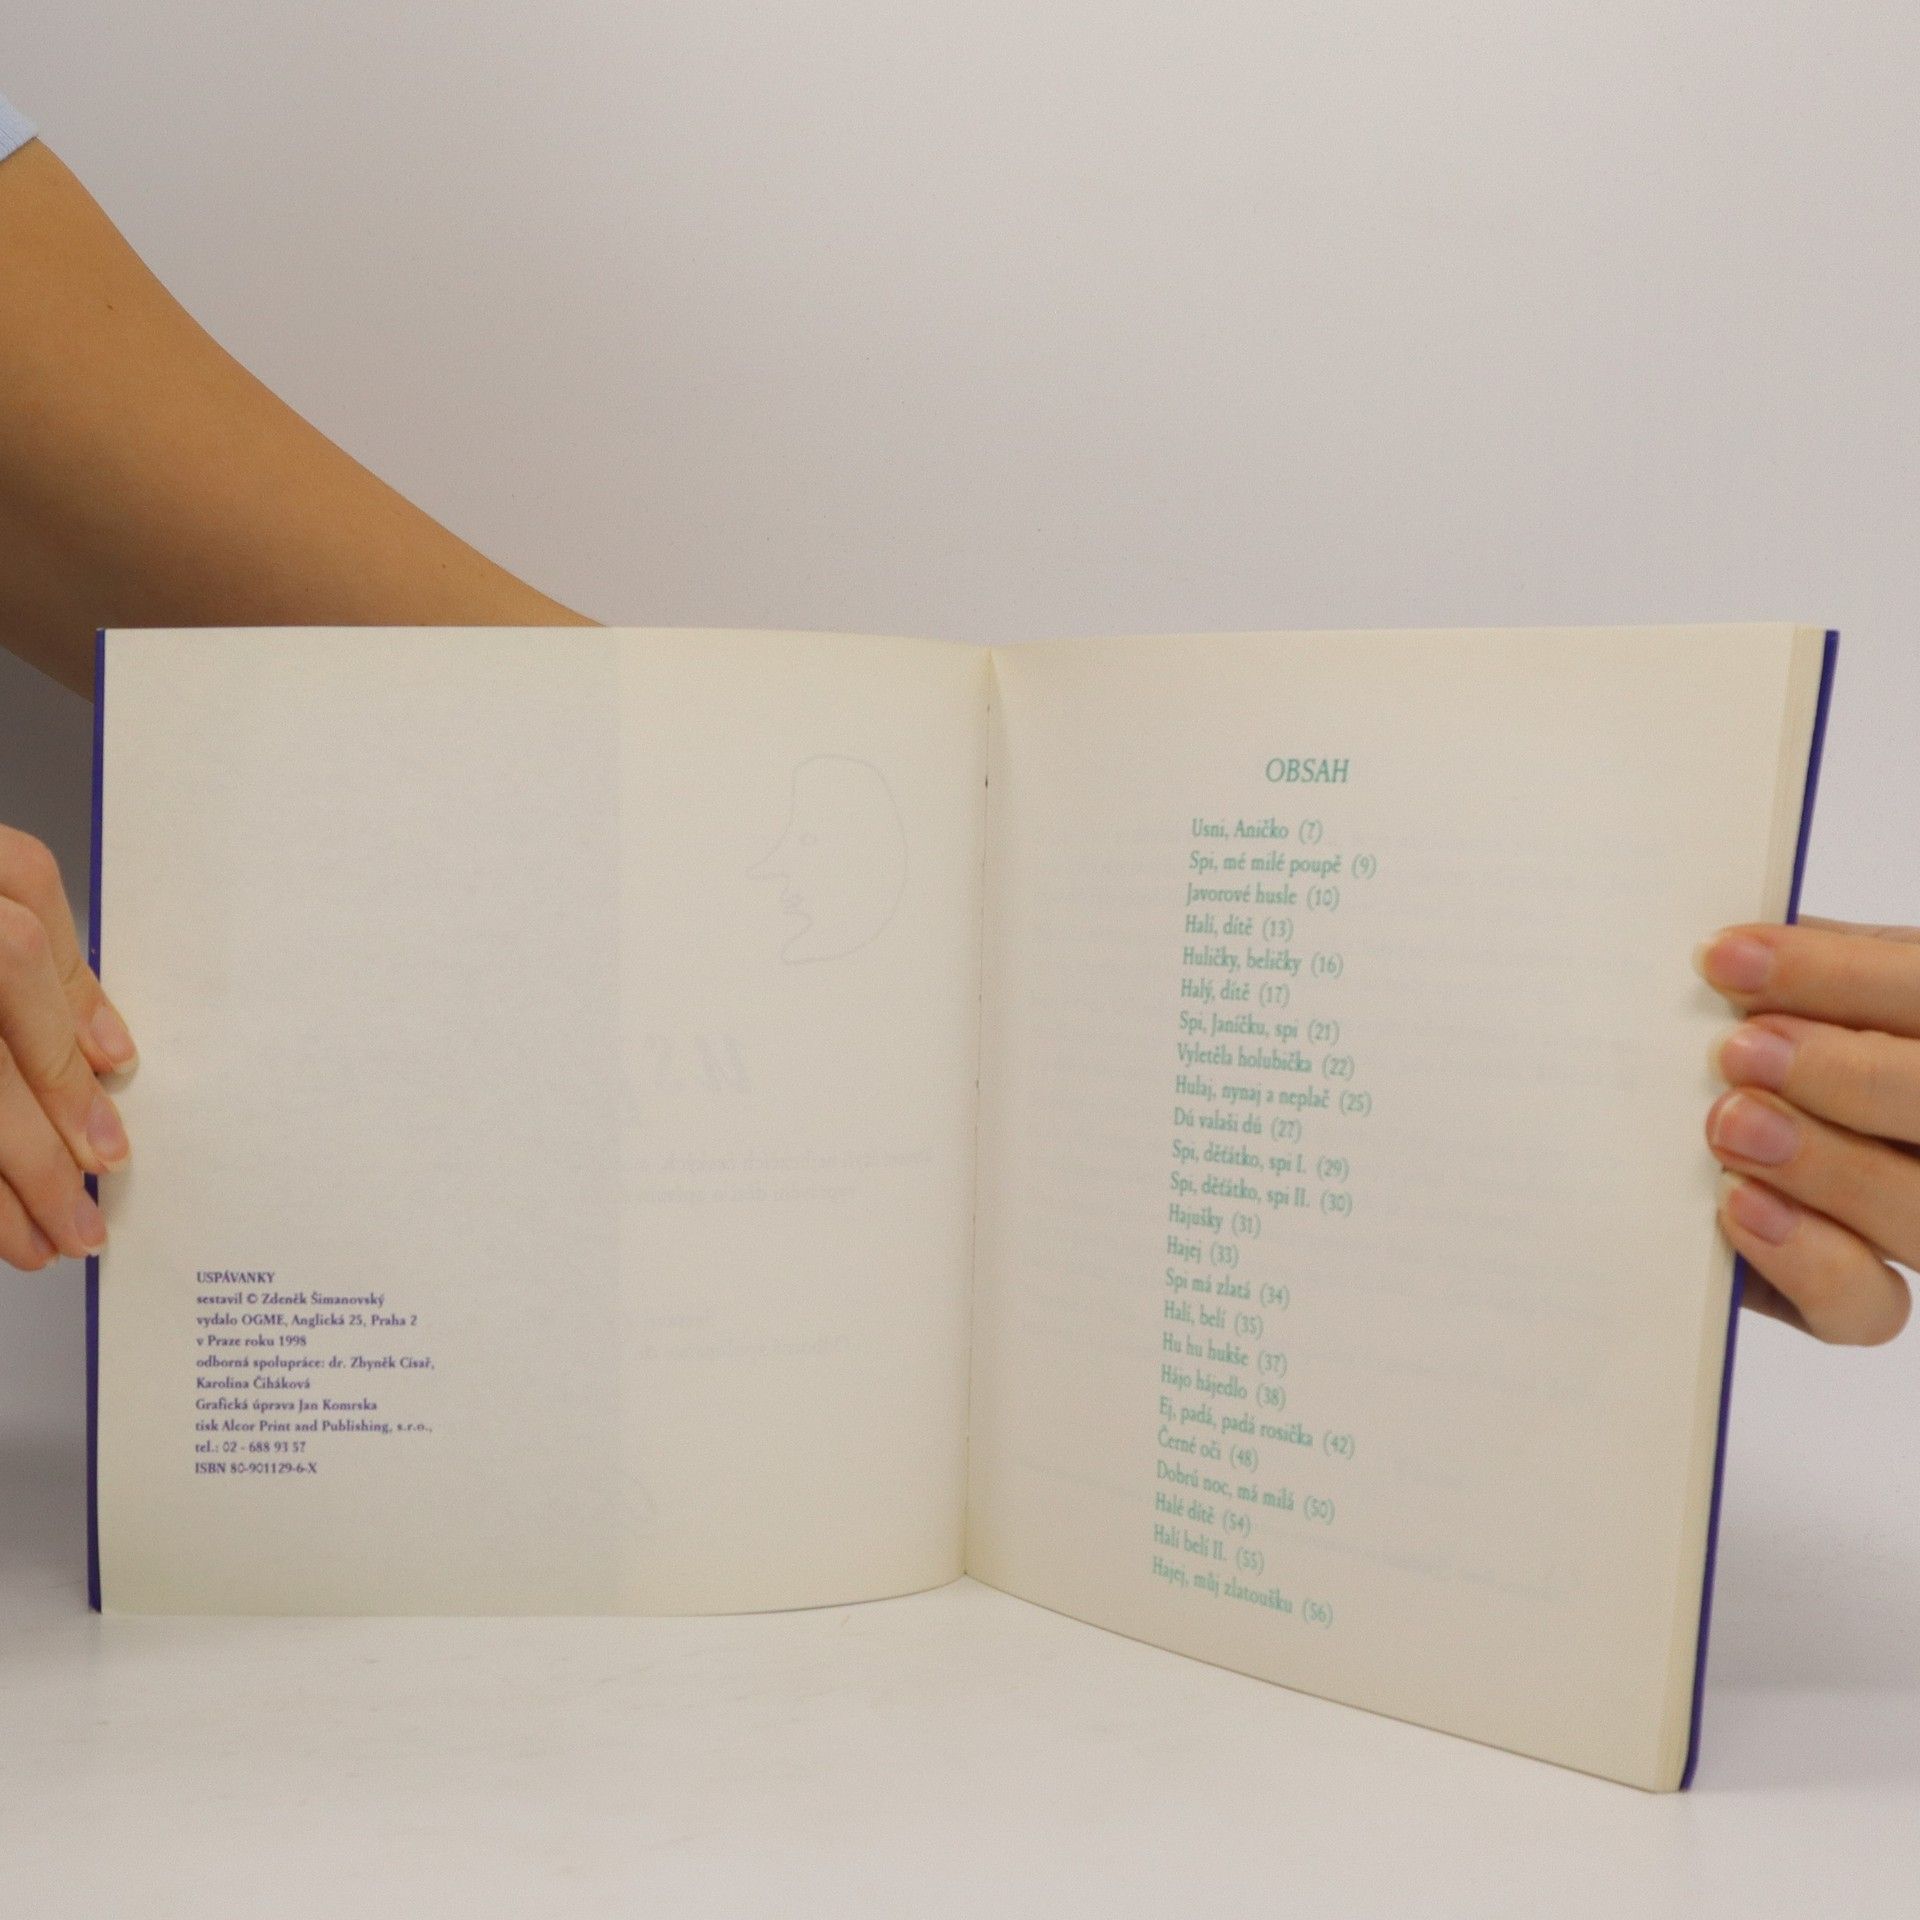 USPÁVANKY
sestavil © Zdeněk Šimanovský
vydalo OGME, Anglická 25, Praha 2
v Praze roku 1998
odborná spolupráce: dr. Zbyněk Císař,
Karolína Čiháková
Grafická úprava Jan Komrska
tisk Alcor Print and Publishing, s.r.o.,
tel.: 02 - 688 93 57
ISBN 80-901129-6-X
OBSAH
Usni, Aničko (7)
Spi, mé milé poupě (9)
Javorové husle (10)
Halí, dítě (13)
Huličky, beličky (16)
Halý, dítě (17)
Spi, Janíčku, spi (21)
Vyletěla holubička (22)
Hulaj, nynaj a neplač (25)
Dú valaši dú (27)
Spi, děťátko, spi I. (29)
Spi, děťátko, spi II. (30)
Hajušky (31)
Hajej (33)
Spi má zlatá (34)
Halí, belí (35)
Hu hu hukše (37)
Hájo hájedlo (38)
Ej, padá, padá rosička (42)
Černé oči (48)
Dobrú noc, má milá (50)
Halé dítě (54)
Halí belí II. (55)
Hajej, můj zlatoušku (56)